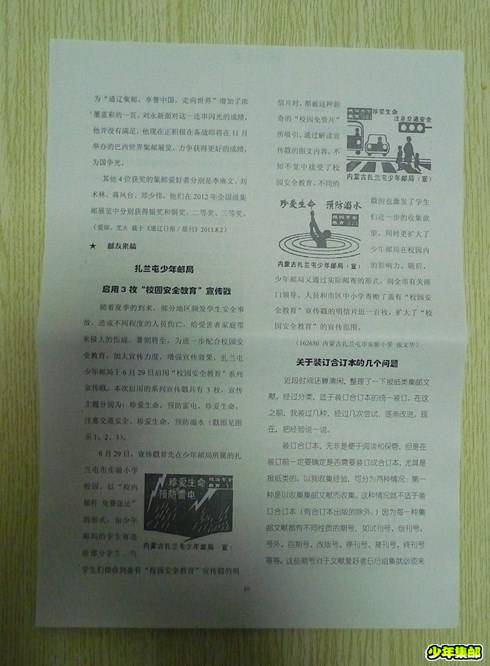 为“通辽集邮，享誉中国，走向世界”增加了浓
墨重彩的一页。刘永新面对这一连串闪光的成绩，
他并没有满足，他现在正积极在备战即将在 11 月
举办的巴西世界集邮展览，力争获得更好的成绩，
为国争光。
其他 4 位获奖的集邮爱好者分别是李东文、刘
术林、蒋凤台、邵少伟，他们在 2012 年全国级集
邮展览中分别获得银奖和铜奖、二等奖、三等奖。
★ 邮友来稿
扎兰屯少年邮局
启用 3 枚“校园安全教育”宣传戳
随着夏季的到来，部分地区频发学生安全事
故，造成不同程度的人员伤亡，给受害者家庭带
来极大的伤痛。暑期将至，为进一步配合校园安
全教育，加大宣传力度，增强宣传效果，扎兰屯
少年邮局于 6 月 29 日启用“校园安全教育”系列
宣传戳。本次启用的系列宣传戳共有 3 枚，宣传
主题分别为：珍爱生命，预防雷电，珍爱生命，
注意交通安全，珍爱生命，预防溺水（戳图见图
示 1、2、3）。
6 月 29 日，宣传戳首先在少年邮局所属的扎
兰屯市实验小学
校园，以“校内
邮杆 免费盖运”
的形式，由少年
邮局的学生赠送
给部分学生，当
学生们接收到盖有“校园安全教育”宣传戳的明
珍爱生命
预防雷电
内蒙古扎兰屯少年邮局（宣）
信片时，都被这种新
奇的“校园免费片”
所吸引，通过解读宣
传戳的图文内容，不
知不觉中接受了校
园安全教育。不同的
珍爱生命
注意交通安全
内蒙古扎兰屯少年邮局（宣）
珍爱生命 预防溺水
内蒙古扎兰屯少年邮局（宣）
戳图也激发了学生
们进一步的收集欲
望，同时更扩大了
少年邮局在校园内
的影响力。随后，
少年邮局又通过实际邮寄的形式，向全市有关部
门领导、人员和市区中小学寄赠了盖有“校园安
全教育”宣传戳的明信片近一百枚，扩大了“校
园安全教育”的宣传范围。
关于装订合订本的几个问题
近段时间还算清闲，整理了一下报纸类集邮文
献。经过分类，适于装订合订本的统一装订。在这
之前，我装过几种，经过几次尝试，逐渐改进。现
在，把经验说一说。
装订合订本，无非是便于阅读和保管。但是在
装订前一定要确定是否需要装订成合订本，尤其是
报纸类的。以我收集经验，可分为两种情况：第一
种是以收集集邮文献而收集，这种情况就不适于装
合订本（有合订本出版的除外。）因为每一种集
邮文献都有不同性质的期号，如试刊号、创刊号、
号外、百期号、改版号、停刊号、复刊号、终刊号
等等。这些期号对于文献爱好者日后组集就必须来
少年集邮